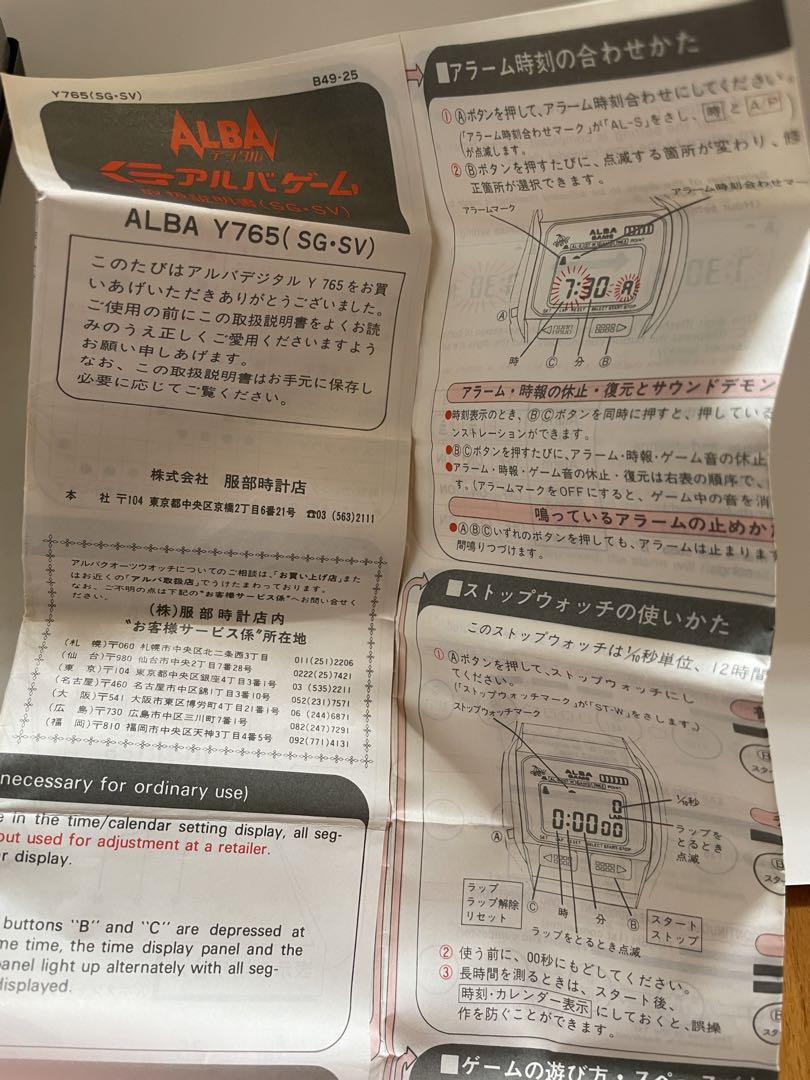 Y765(SG・SV)
B49-25
ALBA
デジタル
アルバゲーム
取扱説明書(SG・SV)
ALBA Y765(SG・SV)
このたびはアルバデジタル Y 765をお買
いあげいただきありがとうございました。
ご使用の前にこの取扱説明書をよくお読
みのうえ正しくご愛用くださいますよう
お願い申しあげます。
なお、この取扱説明書はお手元に保存し
必要に応じてご覧ください。
株式会社 服部時計店
本 社 〒104 東京都中央区京橋2丁目6番21号 ☎03 (563)2111
アルバクオーツウオッチについてのご相談は、「お買い上げ店」また
はお近くの「アルバ取扱店」でうけたまわっております。
なお、ご不明の点は下記の"お客様サービス係"へお問い合せく
ださい。
(株)服部時計店内
"お客様サービス係"所在地
(札 幌)〒060 札幌市中央区北二条西3丁目 011(251)2206
(仙 台)〒980 仙台市中央2丁目7番28号 0222(25)7421
(東 京)〒104 東京都中央区銀座4丁目3番1号 03 (535)2211
(名古屋)〒460 名古屋市中区錦1丁目3番10号 052(231)7571
(大 阪)〒541 大阪市東区博労町4丁目21番1号 06 (244)6871
(広 島)〒730 広島市中区三川町7番1号 082(247)7291
(福 岡)〒810 福岡市中央区天神3丁目4番5号 092(771)4131
necessary for ordinary use)
e in the time/calendar setting display, all seg-
out used for adjustment at a retailer.
r display.
buttons "B" and "C" are depressed at
me time, the time display panel and the
panel light up alternately with all seg-
displayed.
■アラーム時刻の合わせかた
① Ⓐボタンを押して、アラーム時刻合わせにしてください。
(「アラーム時刻合わせマーク」が「AL-S」をさし、時 と A P
が点滅します。
② Ⓑボタンを押すたびに、点滅する箇所が変わり、修
正箇所が選択できます。
アラームマーク
アラーム時刻合わせマー
ALBA
GAME
POINT
7:30 A
SELECT START・STOP
Ⓐ
時 Ⓒ 分 Ⓑ
アラーム・時報の休止・復元とサウンドデモン
●時刻表示のとき、ⒷⒸボタンを同時に押すと、押している
ンストレーションができます。
●ⒷⒸボタンを押すたびに、アラーム・時報・ゲーム音の休止
●アラーム・時報・ゲーム音の休止・復元は右表の順序で、
す。(アラームマークをOFFにすると、ゲーム中の音を消
鳴っているアラームの止めかた
●ⒶⒷⒸいずれのボタンを押しても、アラームは止まります
間鳴りつづけます。
■ストップウォッチの使いかた
このストップウォッチは1/10秒単位、12時間
① Ⓐボタンを押して、ストップウォッチにし
てください。
(「ストップウォッチマーク」が「ST-W」をさします。)
ストップウォッチマーク
ALBA
GAME
POINT
0
LAP
0:0000
SELECT START・STOP
1/10秒
ラップを
とるとき
点滅
Ⓐ
ラップ
ラップ解除
リセット
Ⓒ 時 分 Ⓑ
スタート
ストップ
ラップをとるとき点滅
② 使う前に、00秒にもどしてください。
③ 長時間を測るときは、スタート後、
時刻・カレンダー表示 にしておくと、誤操
作を防ぐことができます。
■ゲームの遊び方・スペース